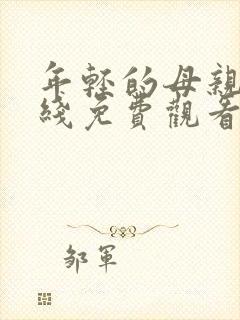 年轻的母親
綫免費觀看
邹軍